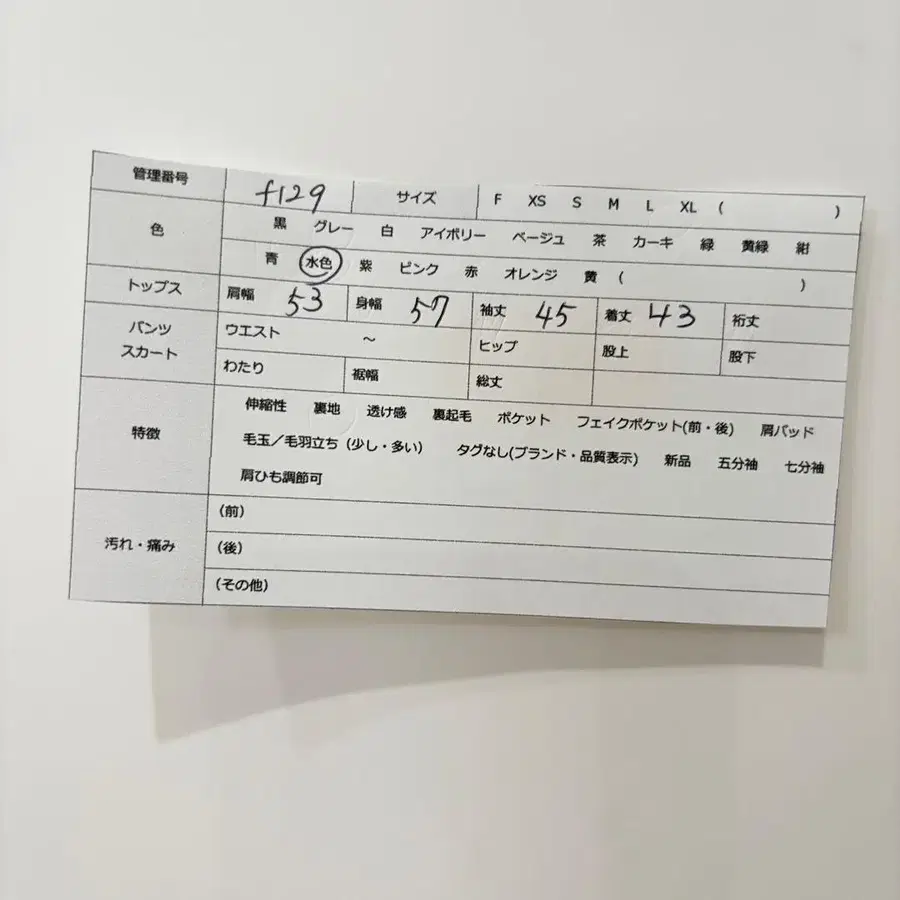 管理番号 f129 サイズ F XS S M L XL ( )
色 黒 グレー 白 アイボリー ベージュ 茶 カーキ 緑 黄緑 紺
青 水色 紫 ピンク 赤 オレンジ 黄 ( )
トップス 肩幅 53 身幅 57 袖丈 45 着丈 43 裄丈
パンツ スカート ウエスト ～ ヒップ 股上 股下
わたり 裾幅 総丈
特徴 伸縮性 裏地 透け感 裏起毛 ポケット フェイクポケット(前・後) 肩パッド
毛玉／毛羽立ち（少し・多い） タグなし(ブランド・品質表示) 新品 五分袖 七分袖
肩ひも調節可
汚れ・痛み （前）
（後）
（その他）